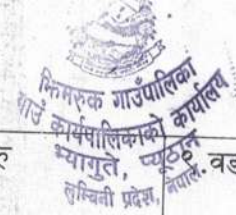 झिमरुक गाउँपालिका
गाउँ कार्यपालिकाको कार्यालय
भ्यागुते, प्यूठान
लुम्बिनी प्रदेश, नेपाल.
रु
९. वड